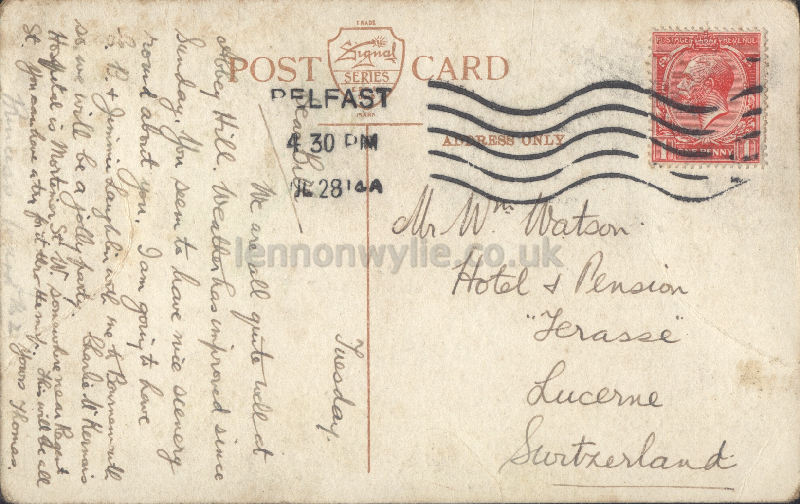 TRADE
Signal
SERIES
MARK
POST CARD
BELFAST
4 30 PM
JL 28 14A
ADDRESS ONLY
POSTAGE REVENUE
ONE PENNY
Mr Wm Watson
Hotel & Pension
"Terasse"
Lucerne
Switzerland
lennonwylie.co.uk
Tuesday.
Dear
We are all quite well at
Abbey Hill. Weather has improved since
Sunday. You seem to have nice scenery
round about you. I am going to have
& Jimmie Laughlin with me to
so we will be a jolly party. Charlie McKernais
Hospital is Mortimer St. W. somewhere near Regent
St. You can have a try for it. This will be all
Yours Thomas,